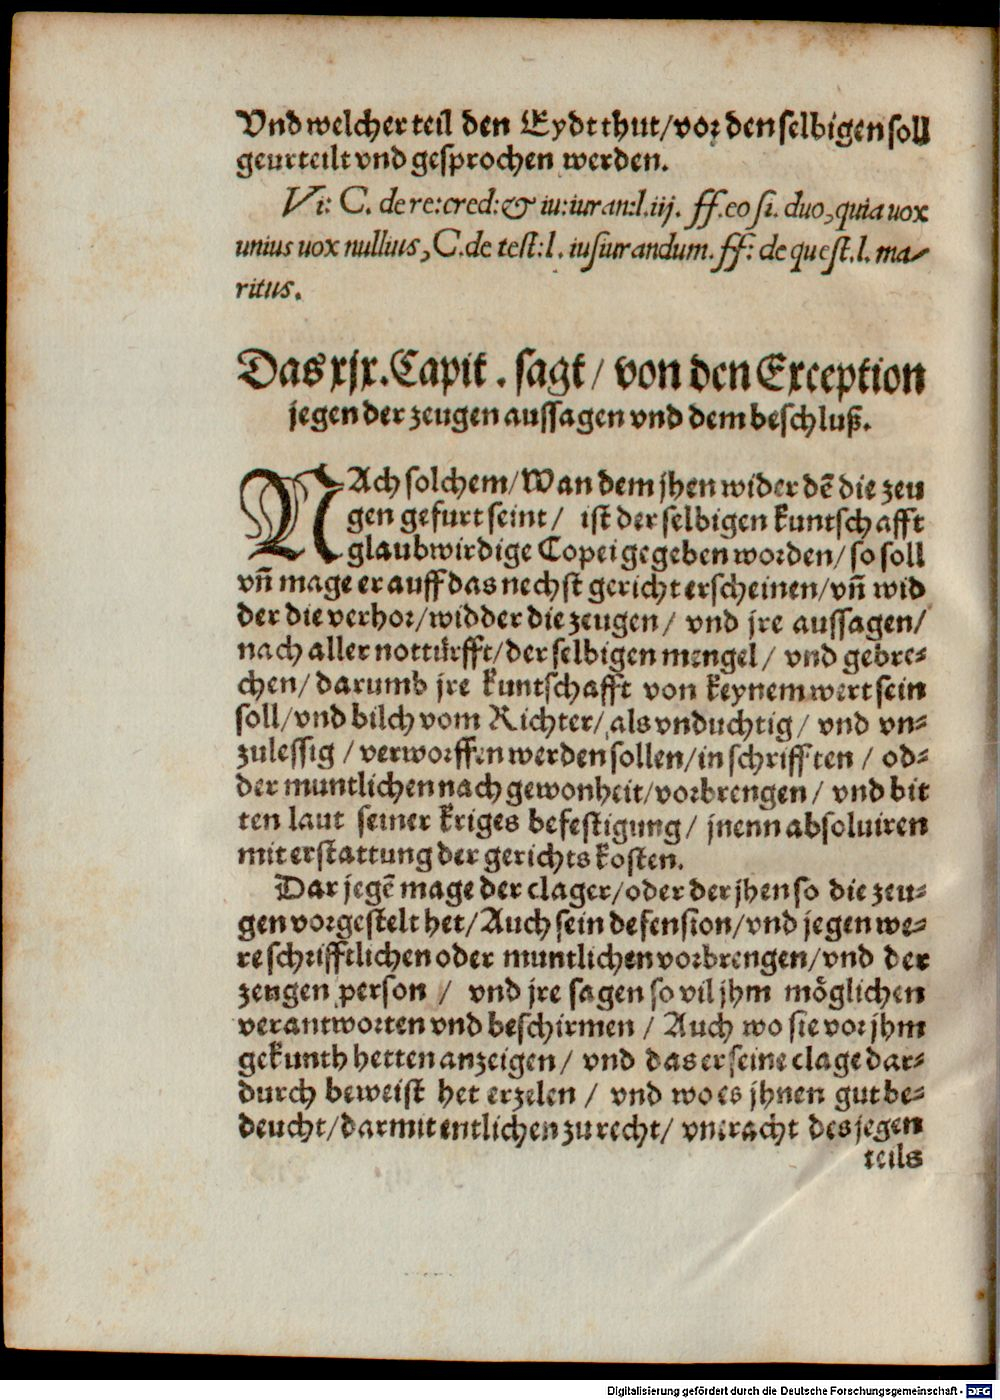 Vnd welcher teil den Eydt thut/vor den selbigen soll
geurteilt vnd gesprochen werden.
Vi: C. de re: cred: & iu: iuran: l. iij. ff. eo si. duo, quia uox
unius uox nullius, C. de test: l. iusiurandum. ff: de quest. l. ma-
ritus.
Das xjx. Capit. sagt/ von den Exception
jegen der zeugen aussagen vnd dem beschluß.
NAch solchem/Wan dem jhen wider dē die zeu
gen gefurt seint/ ist der selbigen kuntschafft
glaubwirdige Copei gegeben worden/ so soll
vn̄ mage er auff das nechst gericht erscheinen/vn̄ wid
der die verhor/widder die zeugen/ vnd jre aussagen/
nach aller notturfft/der selbigen mengel/ vnd gebre-
chen/ darumb jre kuntschafft von keynem wert sein
soll/vnd bilch vom Richter/ als vnduchtig/ vnd vn-
zulessig / verworffen werden sollen/in schrifften / od-
der muntlichen nach gewonheit/vorbrengen/ vnd bit
ten laut seiner kriges befestigung/ jnenn absoluiren
mit erstattung der gerichts kosten.
Dar jegē mage der clager/oder der jhen so die zeu-
gen vorgestelt het/Auch sein defension/vnd jegen we-
re schrifftlichen oder muntlichen vorbrengen/vnd der
zeugen person / vnd jre sagen so vil jhm möglichen
verantworten vnd beschirmen / Auch wo sie vor jhm
gekunth hetten anzeigen/ vnd das er seine clage dar-
durch beweist het erzelen / vnd wo es jhnen gut be-
deucht/darmit entlichen zu recht/ vneracht des jegen
teils
Digitalisierung gefördert durch die Deutsche Forschungsgemeinschaft - DFG